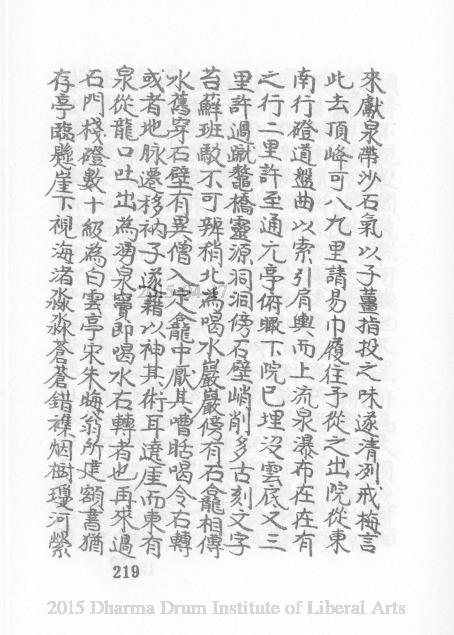 來獻泉帶沙石氣以子薑指投之味遂清冽戒梅言
此去頂峰可八九里請易巾履往予從之出院從東
南行磴道盤曲以索引肩輿而上流泉瀑布在在有
之行二里許至通元亭俯瞰下院已埋沒雲底又三
里許過蹴鰲橋靈源洞洞傍石壁峭削多古刻文字
苔蘚班駮不可辨稍北為喝水巖巖傍有石龕相傳
水舊穿石壁有異僧入定龕中厭其嘈聒喝令右轉
或者地脉遷移衲子遂藉以神其術耳遶崖而東有
泉從龍口吐出為湧泉竇即喝水右轉者也再來過
石門棧磴數十級為白雲亭宋朱晦翁所建額書猶
存亭臨懸崖下視海渚淼淼蒼蒼錯襍烟樹瓊河縈
219
2015 Dharma Drum Institute of Liberal Arts